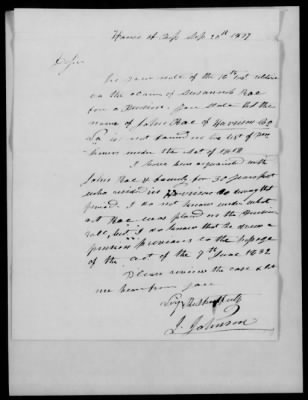 House of Rep Sep. 20th 1837
Dr Sir
In your note of the 16th inst relative
to the claim of Susannah Rae
for a Pension. You state that the
name of John Rae of Harrison Co
Va is not found in the list of pen
sioners under the Act of 1818
I have been acquainted with
John Rae & family for 30 years past
who resided in Harrison Co during that
period. I do not know under what
act Rae was placed on the Pension
roll, but I do know that he drew a
pension previous to the passage
of the act of the 7th June 1832
Please review the case & let
me hear from you
Very Respectfully
J. Johnson